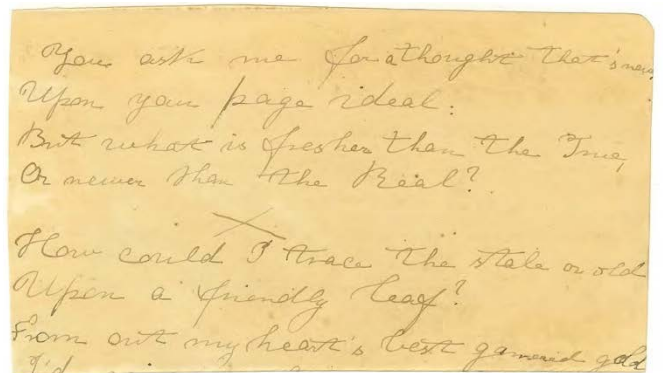 You ask me for a thought that's new,
Upon your page ideal:
But what is fresher than the True,
Or newer than the Real?
How could I trace the stale or old
Upon a friendly leaf?
From out my heart's best garnered gold
I'd